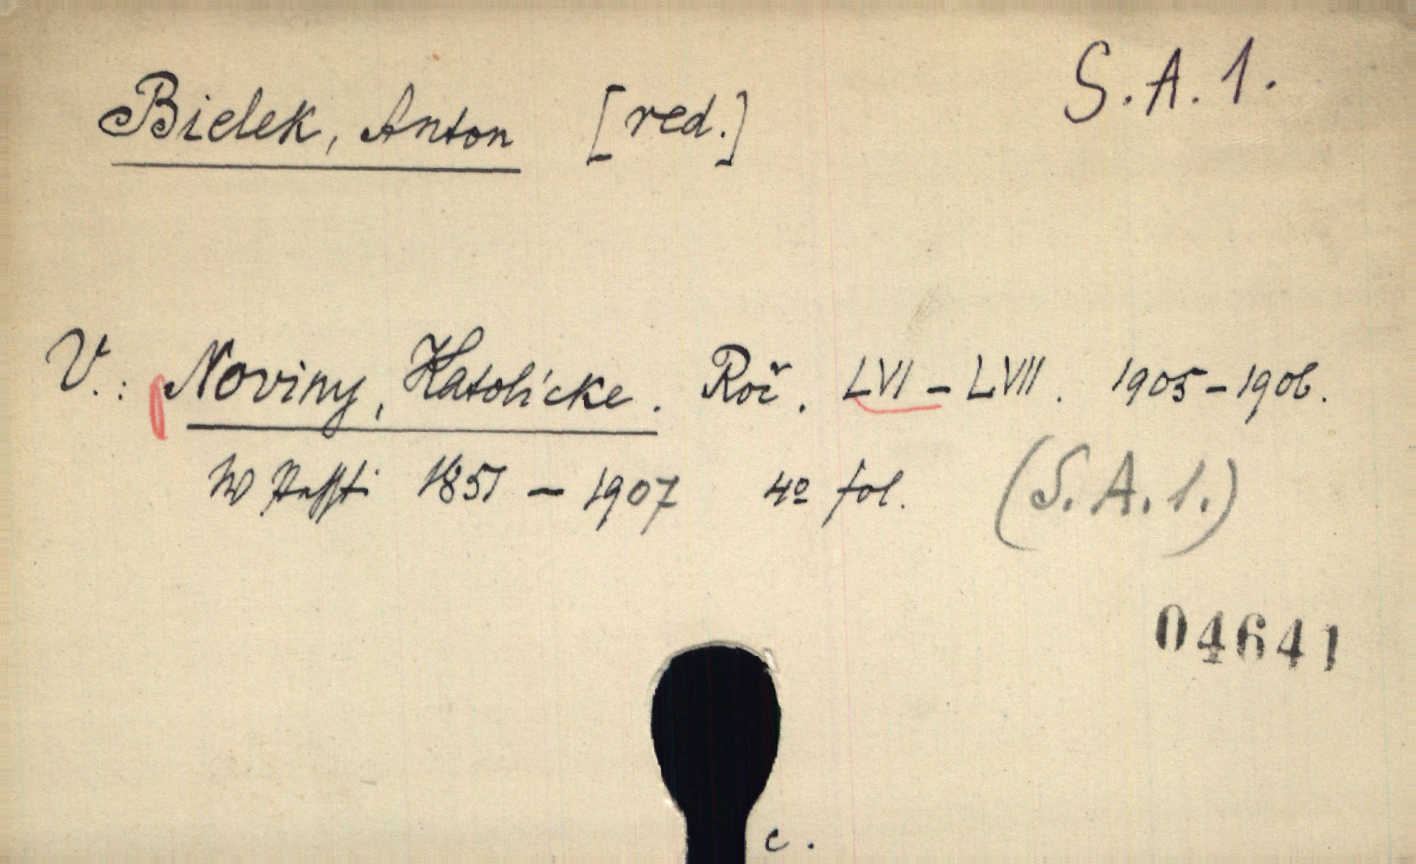 S. A. 1.
Bielek, Anton [red.]
V.: Noviny, Katolícke. Roč. LVI - LVII. 1905-1906.
W Pešti 1851 - 1907 4º fol. (S. A. 1.)
04641
c.